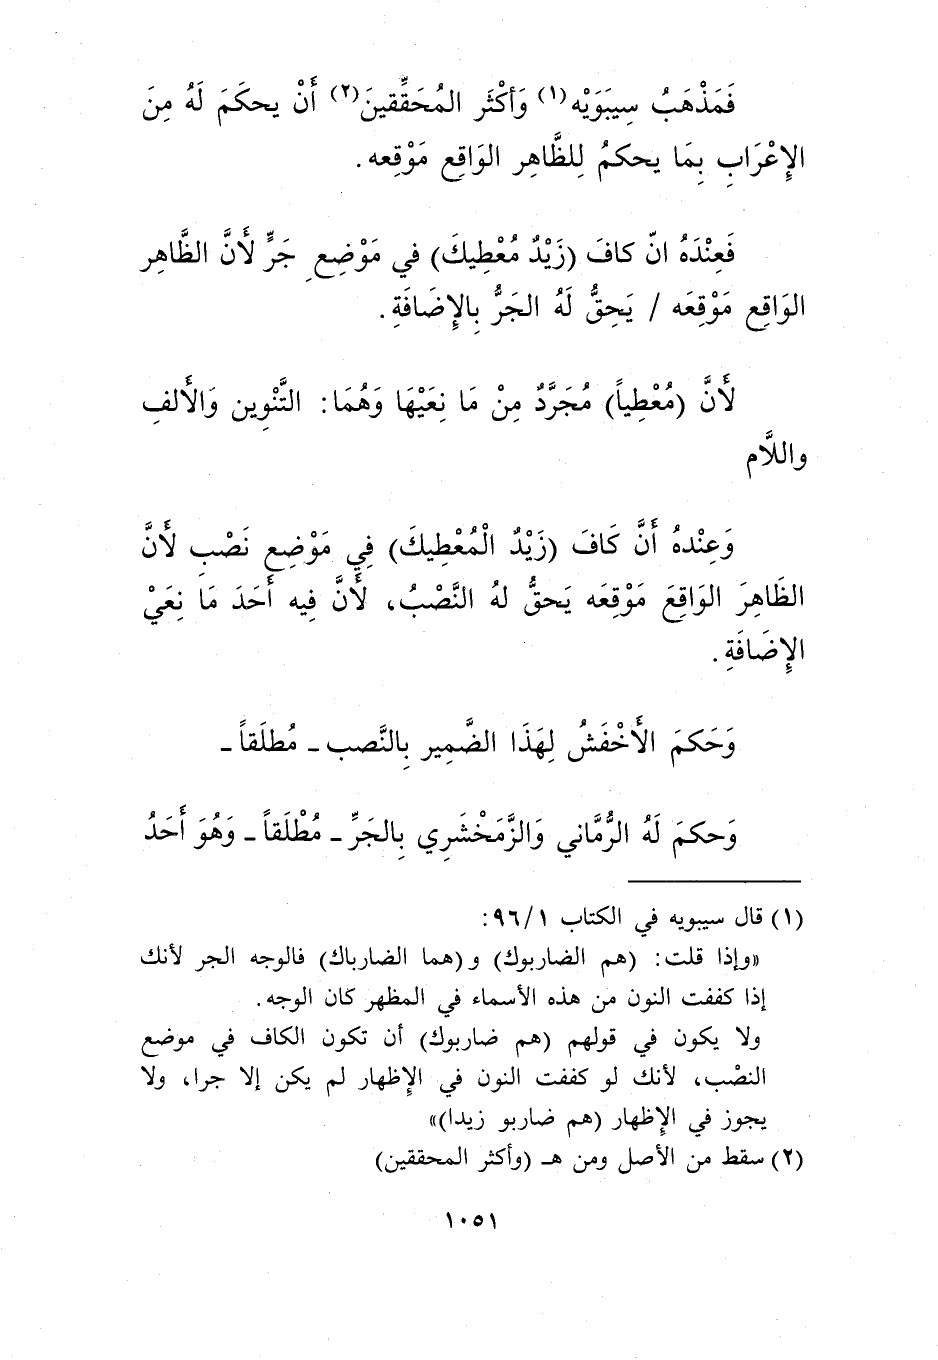 فَمَذْهَبُ سِيبَوَيْه(١) وَأكْثَر المُحَقِّقينَ(٢) أَنْ يحكَمَ لَهُ مِنَ
الإِعْرَابِ بِمَا يحكمُ لِلظَّاهِر الوَاقِعِ مَوْقِعه.
فَعِنْدَهُ انّ كافَ (زَيْدٌ مُعْطِيكَ) في مَوْضِعِ جَرٍّ لأَنَّ الظَّاهِر
الوَاقِعِ مَوْقِعَه / يَحِقُّ لَهُ الجَرُّ بِالإِضَافَةِ.
لأَنَّ (مُعْطِياً) مُجَرَّدٌ مِنْ مَا نِعَيْهَا وَهُمَا: التَّنْوِين وَالأَلفِ
واللَّام
وَعِنْدهُ أَنَّ كَافَ (زَيْدٌ الْمُعْطِيكَ) فِي مَوْضِعِ نَصْبٍ لأَنَّ
الظَاهِرَ الوَاقِعَ مَوْقِعَه يَحقُّ لهُ النَّصْبُ، لأَنَّ فِيه أَحَدَ مَا نِعَيْ
الإِضَافَةِ.
وَحَكمَ الأَخْفَشُ لِهَذَا الضَّمِير بِالنَّصب ـ مُطلَقاً ـ
وَحكمَ لَهُ الرُّمَّاني وَالزَّمَخْشَرِي بِالجَرِّ ـ مُطْلَقاً ـ وَهُوَ أَحَدُ
(١) قال سيبويه في الكتاب ٩٦/١:
«وإذا قلت: (هم الضاربوك) و(هما الضارباك) فالوجه الجر لأنك
إذا كففت النون من هذه الأسماء في المظهر كان الوجه.
ولا يكون في قولهم (هم ضاربوك) أن تكون الكاف في موضع
النصْب، لأنك لو كففت النون في الإِظهار لم يكن إلا جرا، ولا
يجوز في الإِظهار (هم ضاربو زيدا)»
(٢) سقط من الأصل ومن هـ (وأكثر المحققين)
١٠٥١